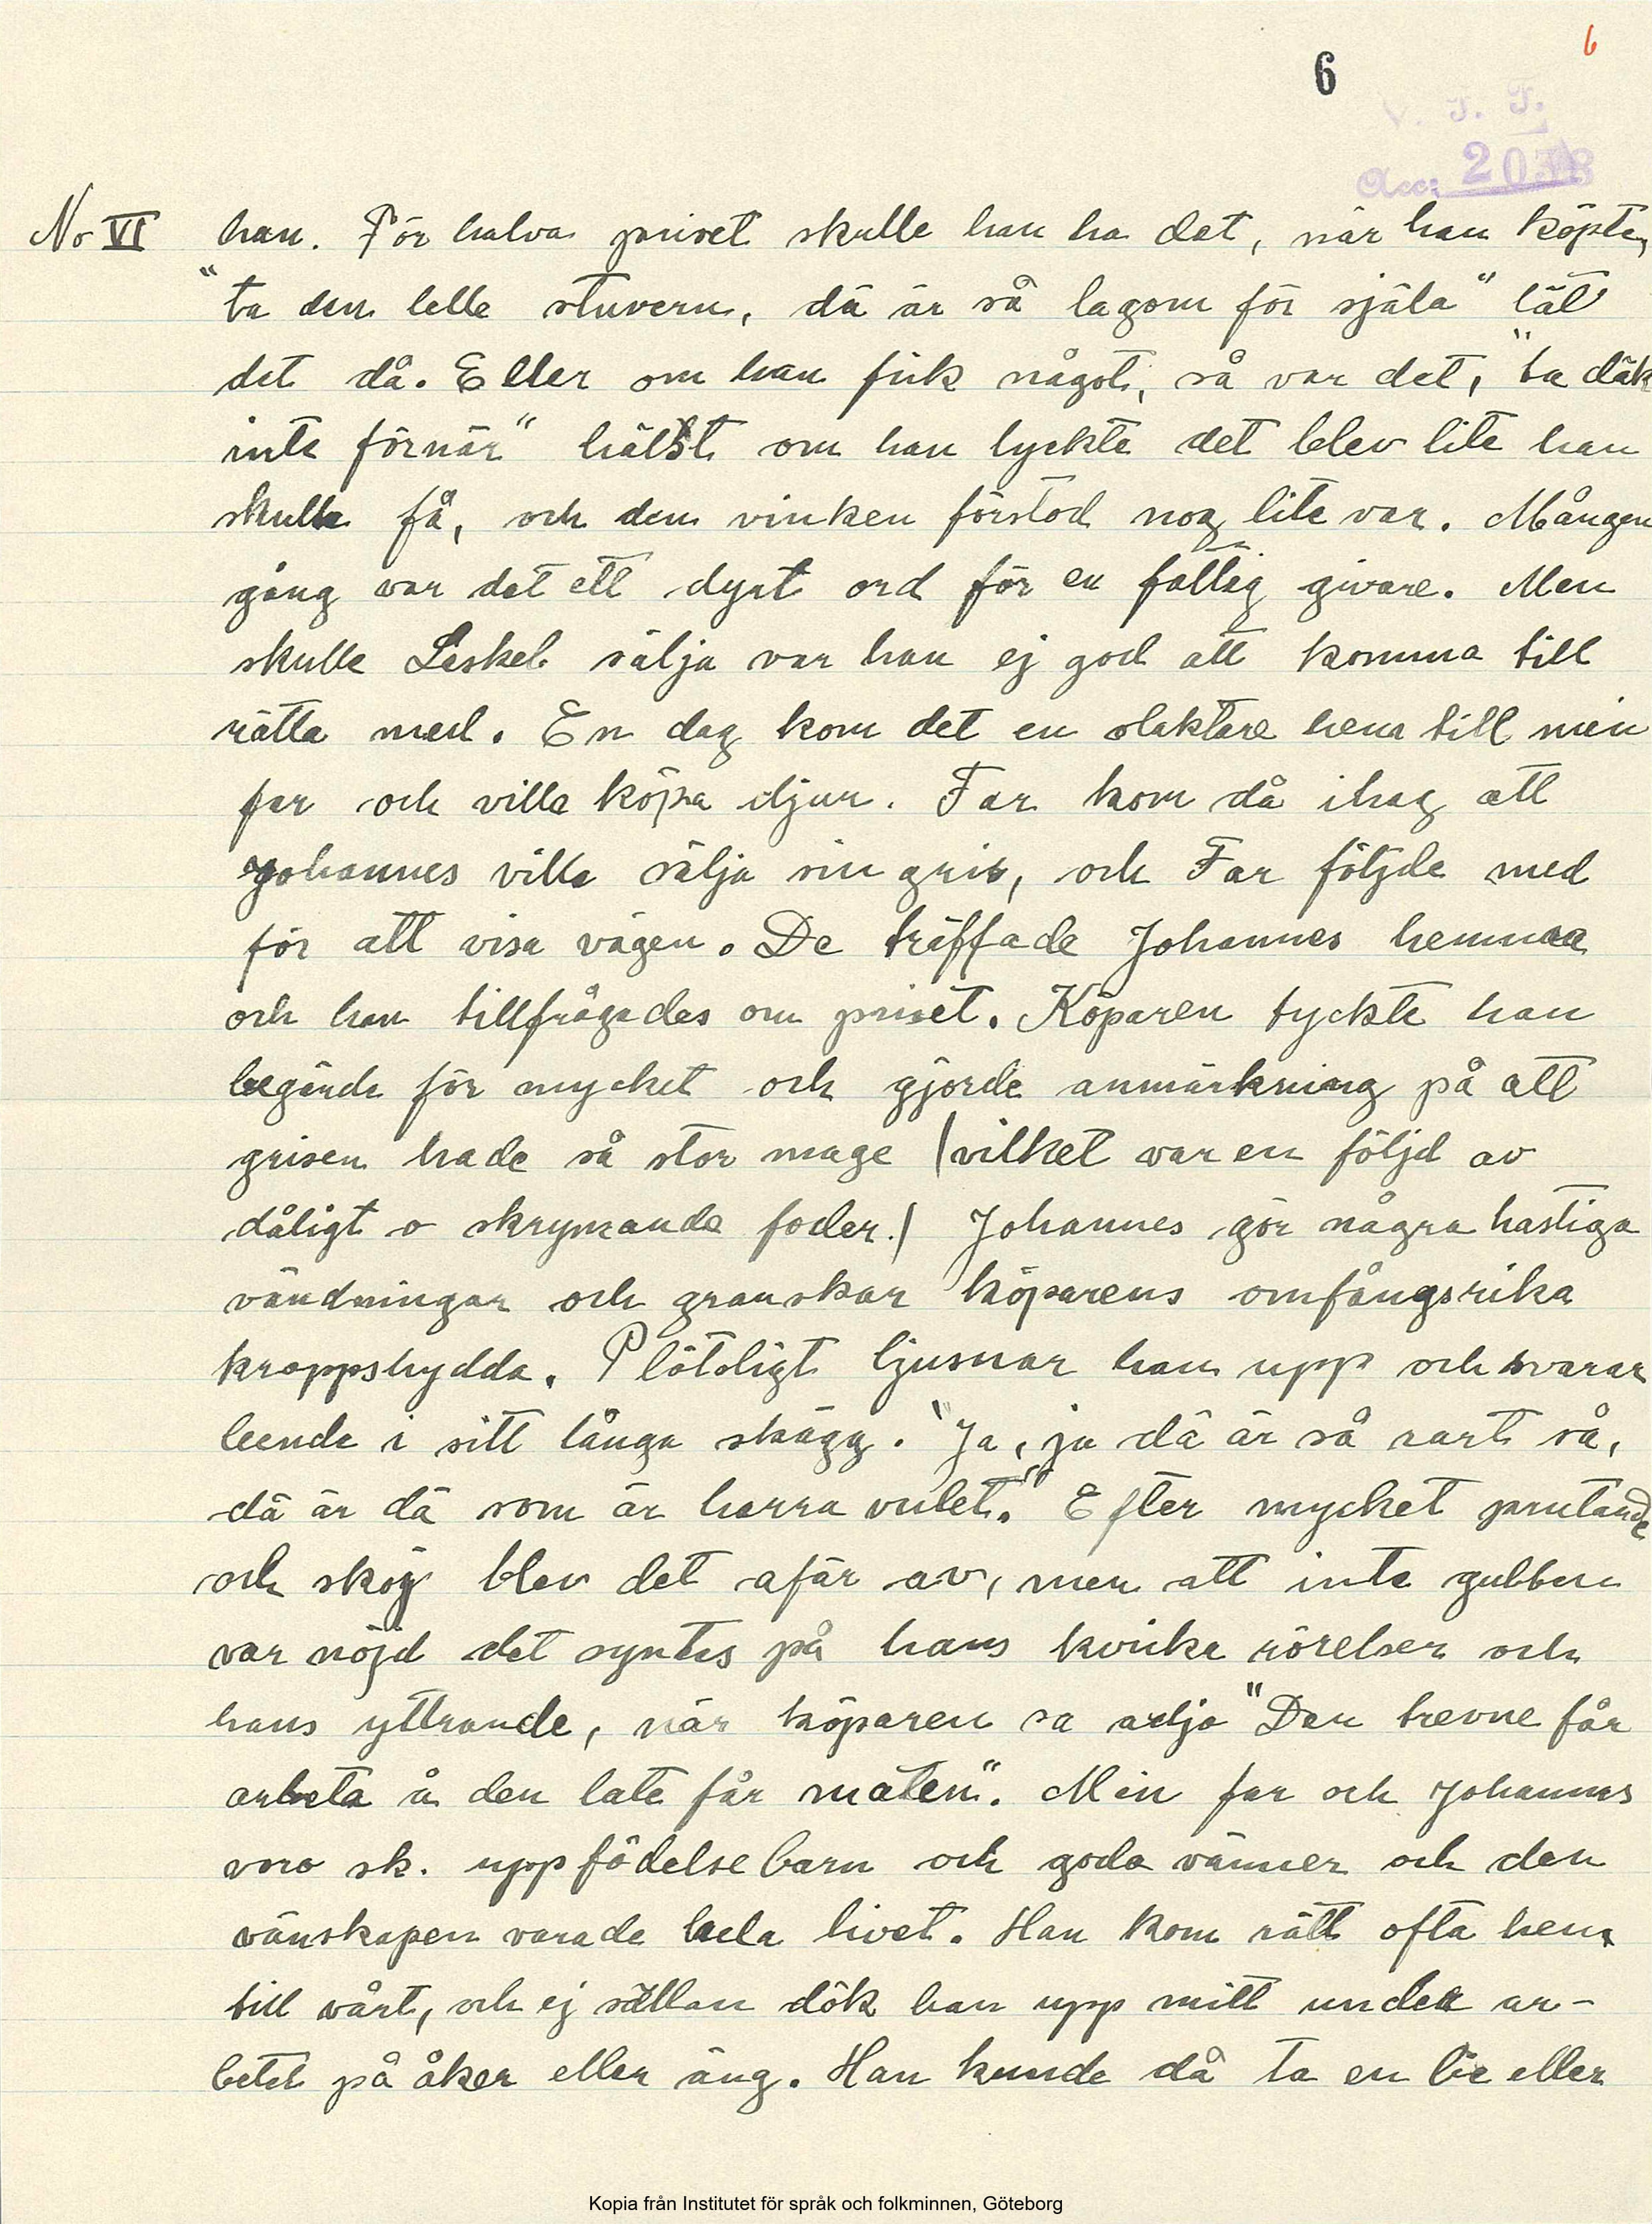 6
6
V. F. F.
Acc: 2038
No VI han. För halva priset skulle han ha det, när han köpte,
"ta den lelle stuvern, dä är så lagom för själa" lät
det då. Eller om han fick något, så var det, "ta däk
inte förnär" hälst om han tyckte det blev lite han
skulle få, och den vinken förstod nog lite var. Mången
gång var det ett dyrt ord för en fattig givare. Men
skulle Leskel sälja var han ej god att komma till
rätta med. En dag kom det en slaktare hem till min
far och ville köpa djur. Far kom då ihag att
Johannes ville sälja sin gris, och Far följde med
för att visa vägen. De träffade Johannes hemma
och han tillfrågades om priset. Köparen tyckte han
begärde för mycket och gjorde anmärkning på att
grisen hade så stor mage (vilket var en följd av
dåligt o skrymande foder.) Johannes gör några hastiga
vändningar och granskar köparens omfångsrika
kroppshydda. Plötsligt ljusnar han upp och svarar
leende i sitt långa skägg. "Ja, ja dä är så rart så,
dä är dä som är herra vulet." Efter mycket prutande
och skoj blev det afär av, men att inte gubben
var nöjd det syntes på hans kvicka rörelser och
hans yttrande, när köparen sa adjö "Den trevne får
arbeta å den late får maten". Min far och Johannes
voro sk. uppfödelsebarn och goda vänner och den
vänskapen varade hela livet. Han kom rätt ofta hem
till vårt, och ej sällan dök han upp mitt under ar-
betet på åker eller äng. Han kunde då ta en lie eller
Kopia från Institutet för språk och folkminnen, Göteborg